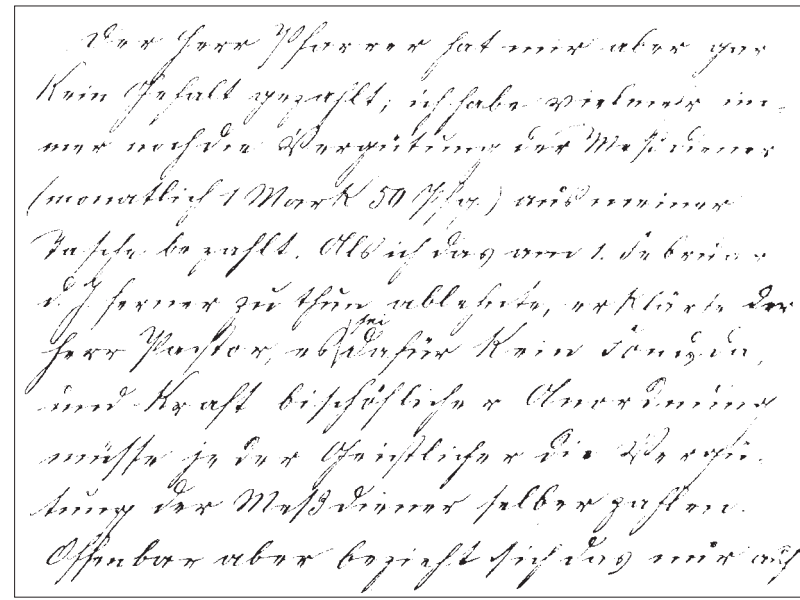 Der Herr Pfarrer hat mir aber gar
kein Gehalt gezahlt; ich habe vielmehr im-
mer noch die Vergütung der Meßdiener
(monatlich 1 Mark 50 Pfg.) aus meiner
Tasche bezahlt. Als ich das am 1. Februar
d J ferner zu thun ablehnte, erklärte der
Herr Pastor, es sei dafür kein Fonds da,
und kraft bischöflicher Anordnung
müsse jeder Geistlicher die Vergü-
tung der Meßdiener selber zahlen.
Offenbar aber bezieht sich das nur auf